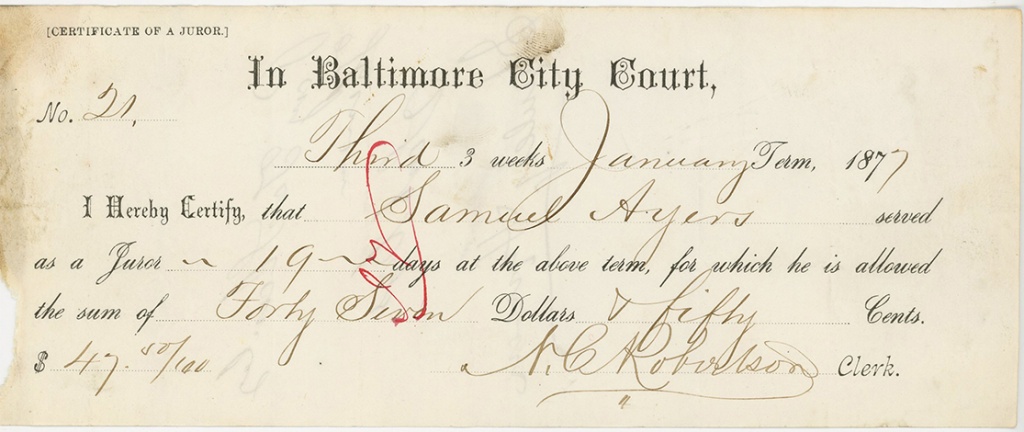 [CERTIFICATE OF A JUROR.]
In Baltimore City Court,
No. 21,
Third 3 weeks January Term, 1877
I Hereby Certify, that Samuel Ayers served
as a Juror ~ 19 ~ days at the above term, for which he is allowed
the sum of Forty Seven Dollars & fifty Cents.
$ 47 50/100 N. C. Robertson Clerk.